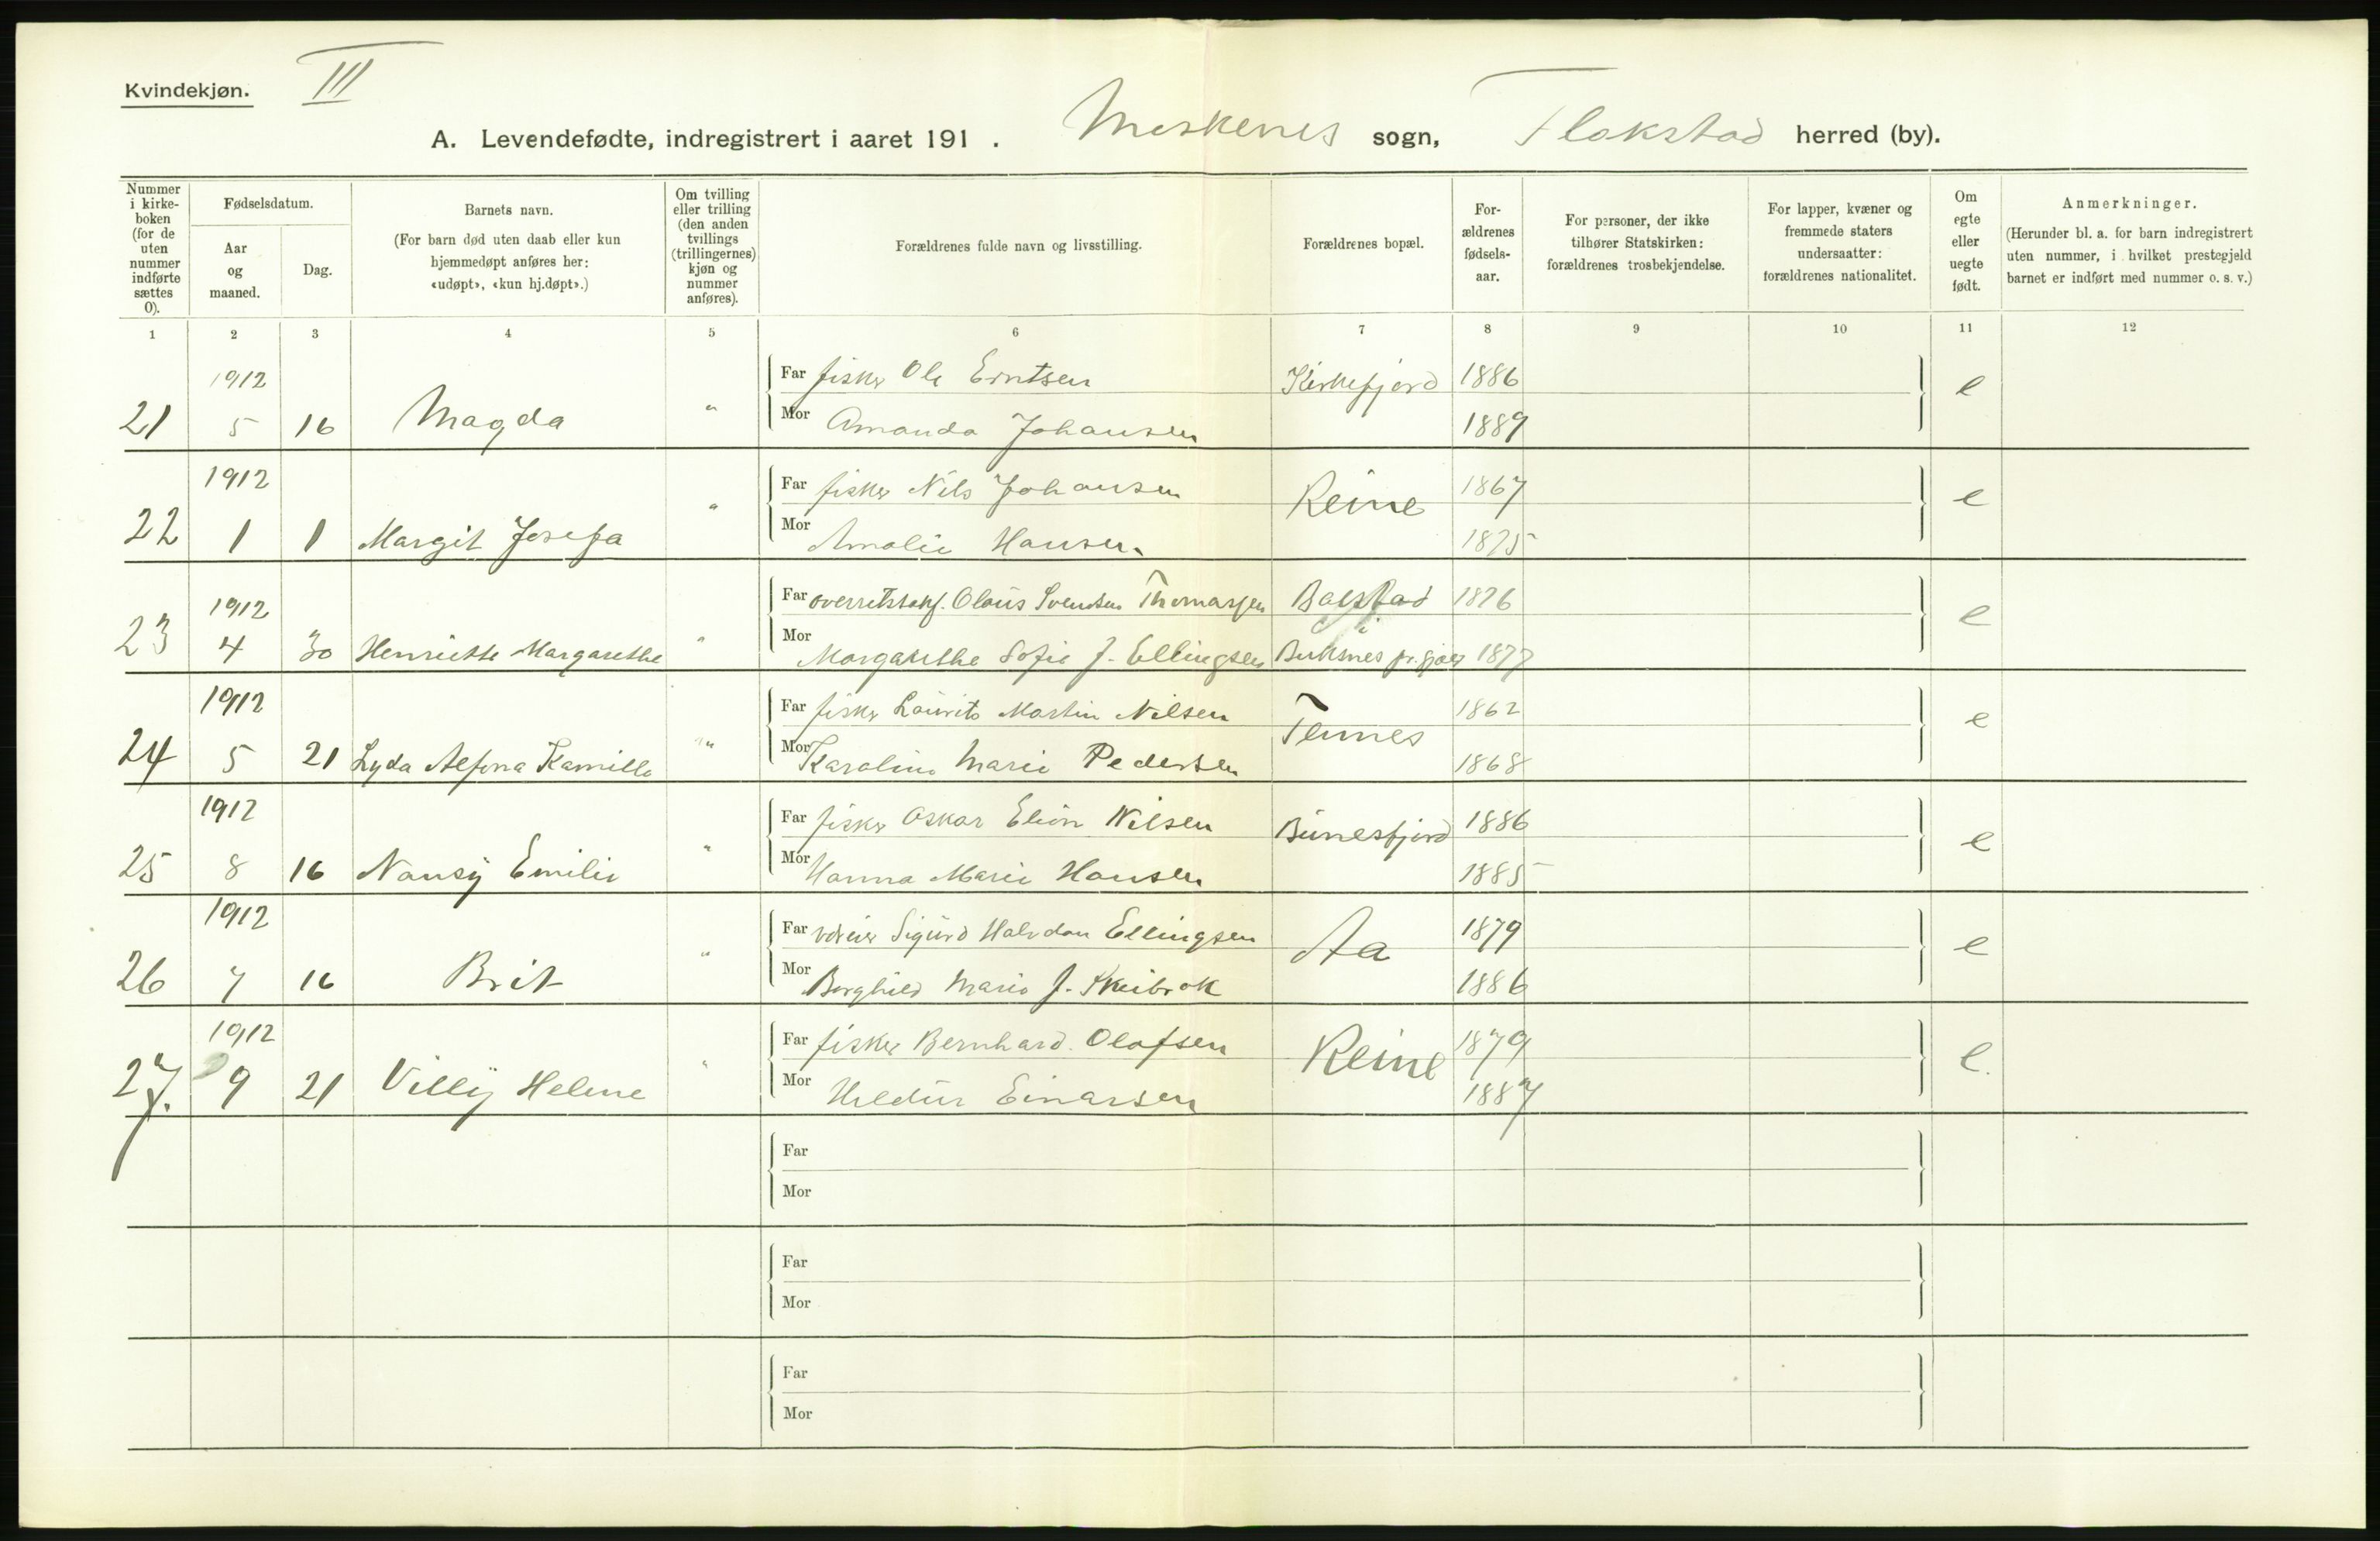 Kvindekjøn.
III
A. Levendefødte, indregistrert i aaret 191 . Moskenes sogn, Flakstad herred (by).
Nummer i kirkeboken (for de uten nummer indførte sættes 0).
Fødselsdatum.
Aar og maaned.
Dag.
Barnets navn.
(For barn død uten daab eller kun hjemmedøpt anføres her: «udøpt», «kun hj.døpt».)
Om tvilling eller trilling (den anden tvillings (trillingernes) kjøn og nummer anføres).
Forældrenes fulde navn og livsstilling.
Forældrenes bopæl.
Forældrenes fødselsaar.
For personer, der ikke tilhører Statskirken: forældrenes trosbekjendelse.
For lapper, kvæner og fremmede staters undersaatter: forældrenes nationalitet.
Om egte eller uegte født.
Anmerkninger.
(Herunder bl. a. for barn indregistrert uten nummer, i hvilket prestegjeld barnet er indført med nummer o. s. v.)
1 2 3 4 5 6 7 8 9 10 11 12
1912 Far fisker Ole Erntsen Kirkefjord 1886 e
21 5 16 Magda " Mor Amanda Johansen 1889
1912 Far fisker Nils Johansen Reine 1867 e
22 1 1 Margit Josefa " Mor Amalie Hansen 1875
1912 Far overretssakf. Olaus Svendsen Thomassen Balstad 1876 e
i
23 4 30 Henriette Margarethe " Mor Margarethe Sofie f. Ellingsen Buksnes pr.gjæld 1877
1912 Far fisker Laurits Martin Nilsen Tennes 1862 e
24 5 21 Lyda Alfona Kamilla " Mor Karoline Marie Pedersen 1868
1912 Far fisker Oskar Elion Nilsen Bunesfjord 1886 e
25 8 16 Nansy Emilie " Mor Hanna Marie Hansen 1885
1912 Far Sigurd Halvdan Ellingsen Aa 1879 e
26 7 16 Brit " Mor Borghild Marie f. Skeibrok 1886
1912 Far fisker Bernhard Olafsen Reine 1879 e.
27. 9 21 Villy Helene " Mor Hildur Einarsen 1887
Far
Mor
Far
Mor
Far
Mor